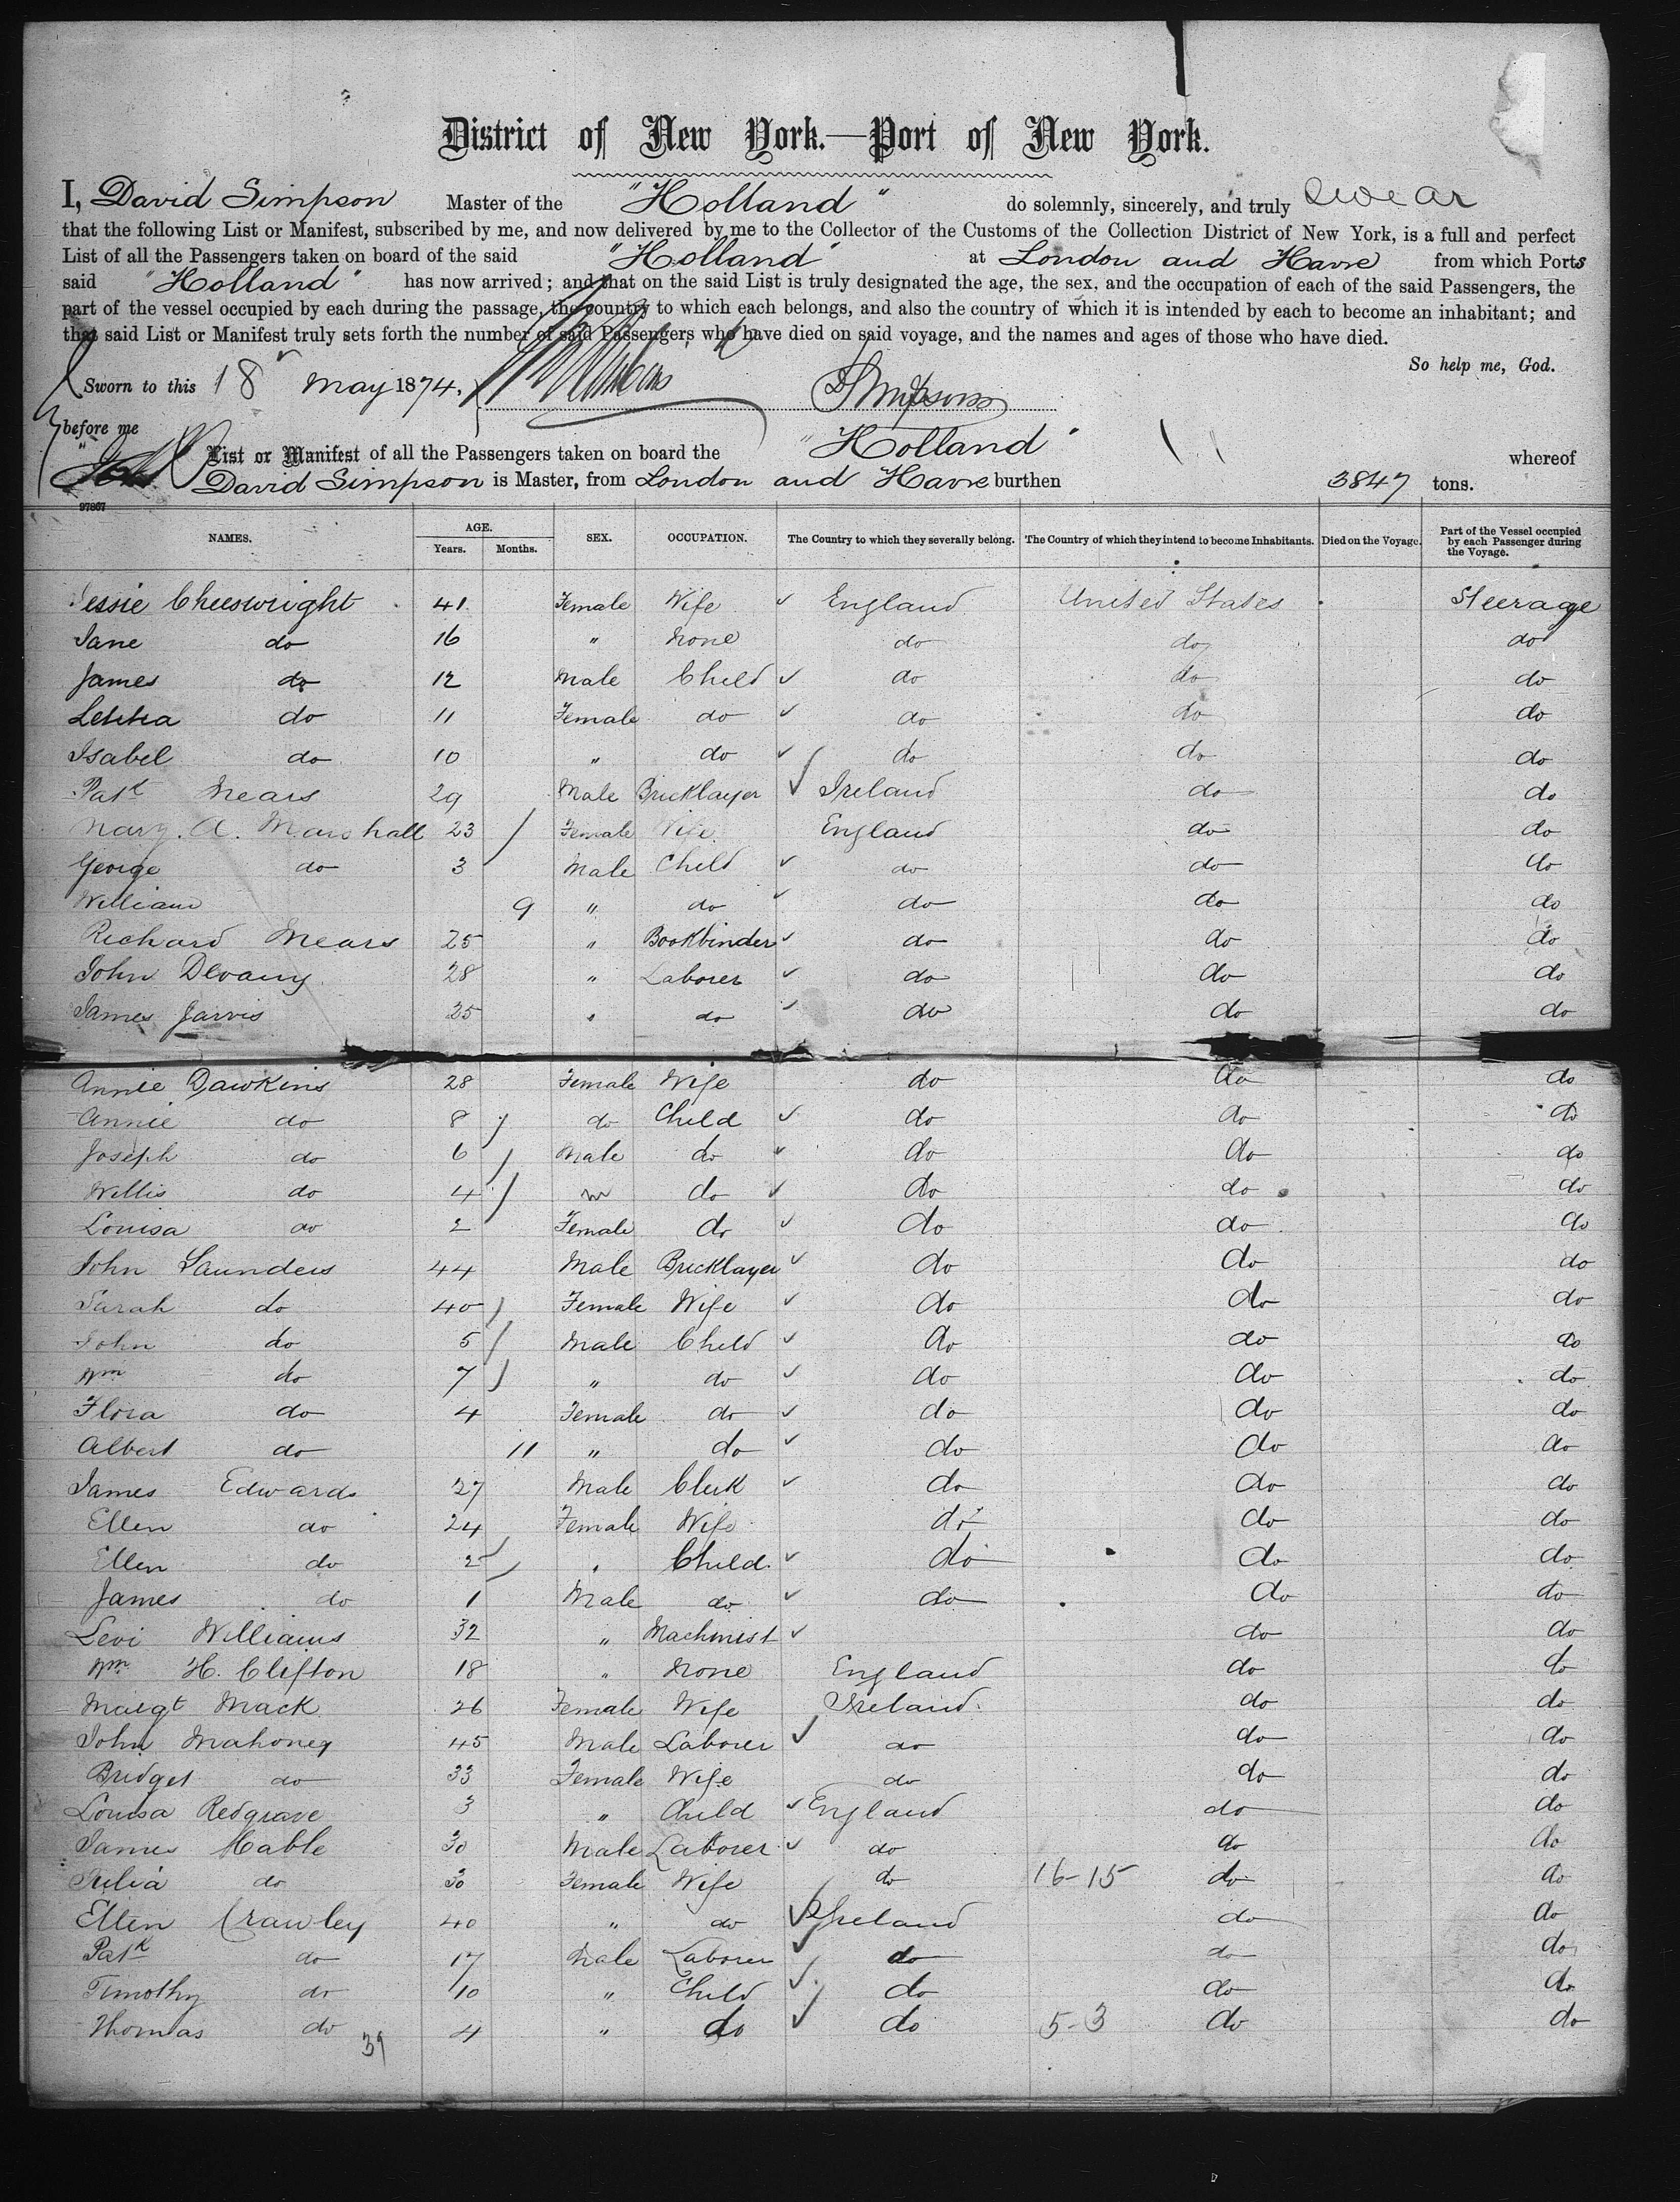 District of New York.—Port of New York.
I, David Simpson Master of the "Holland" do solemnly, sincerely, and truly swear
that the following List or Manifest, subscribed by me, and now delivered by me to the Collector of the Customs of the Collection District of New York, is a full and perfect
List of all the Passengers taken on board of the said "Holland" at London and Havre from which Ports
said "Holland" has now arrived; and that on the said List is truly designated the age, the sex, and the occupation of each of the said Passengers, the
part of the vessel occupied by each during the passage, the country to which each belongs, and also the country of which it is intended by each to become an inhabitant; and
that said List or Manifest truly sets forth the number of said Passengers who have died on said voyage, and the names and ages of those who have died.
So help me, God.
Sworn to this 18 May 1874. Simpson
before me
List or Manifest of all the Passengers taken on board the "Holland" whereof
David Simpson is Master, from London and Havre burthen 3847 tons.
97867
NAMES. AGE. Years. Months. SEX. OCCUPATION. The Country to which they severally belong. The Country of which they intend to become Inhabitants. Died on the Voyage. Part of the Vessel occupied by each Passenger during the Voyage.
Jessie Cheeswright 41 Female Wife England United States Steerage
Jane do 16 " None do do do
James do 12 Male Child do do do
Letitia do 11 Female do do do do
Isabel do 10 " do do do do
Patk Mears 29 Male Bricklayer Ireland do do
Mary. A. Marshall 23 Female Wife England do do
George do 3 Male Child do do do
William 9 " do do do do
Richard Mears 25 " Bookbinder do do do
John Devany 28 " Laborer do do do
James Jarvis 25 " do do do do
Annie Dawkins 28 Female Wife do do do
Annie do 8 do Child do do do
Joseph do 6 Male do do do do
Willis do 4 " do do do do
Louisa do 2 Female do do do do
John Saunders 44 Male Bricklayer do do do
Sarah do 40 Female Wife do do do
John do 5 Male Child do do do
Wm do 7 " do do do do
Flora do 4 Female do do do do
Albert do 11 " do do do do
James Edwards 27 Male Clerk do do do
Ellen do 24 Female Wife do do do
Ellen do 2 " Child do do do
James do 1 Male do do do do
Levi Williams 32 " Machinist do do
Wm H. Clifton 18 " None England do do
Margt Mack 26 Female Wife Ireland do do
John Mahoney 45 Male Laborer do do do
Bridget do 33 Female Wife do do do
Louisa Redgrave 3 " Child England do do
James Mable 30 Male Laborer do do do
Julia do 30 Female Wife do 16-15 do do
Ellen Crawley 40 " do Ireland do do
Patk do 17 Male Laborer do do do
Timothy do 10 " Child do do do
Thomas do 4 " do do 5-3 do do
39